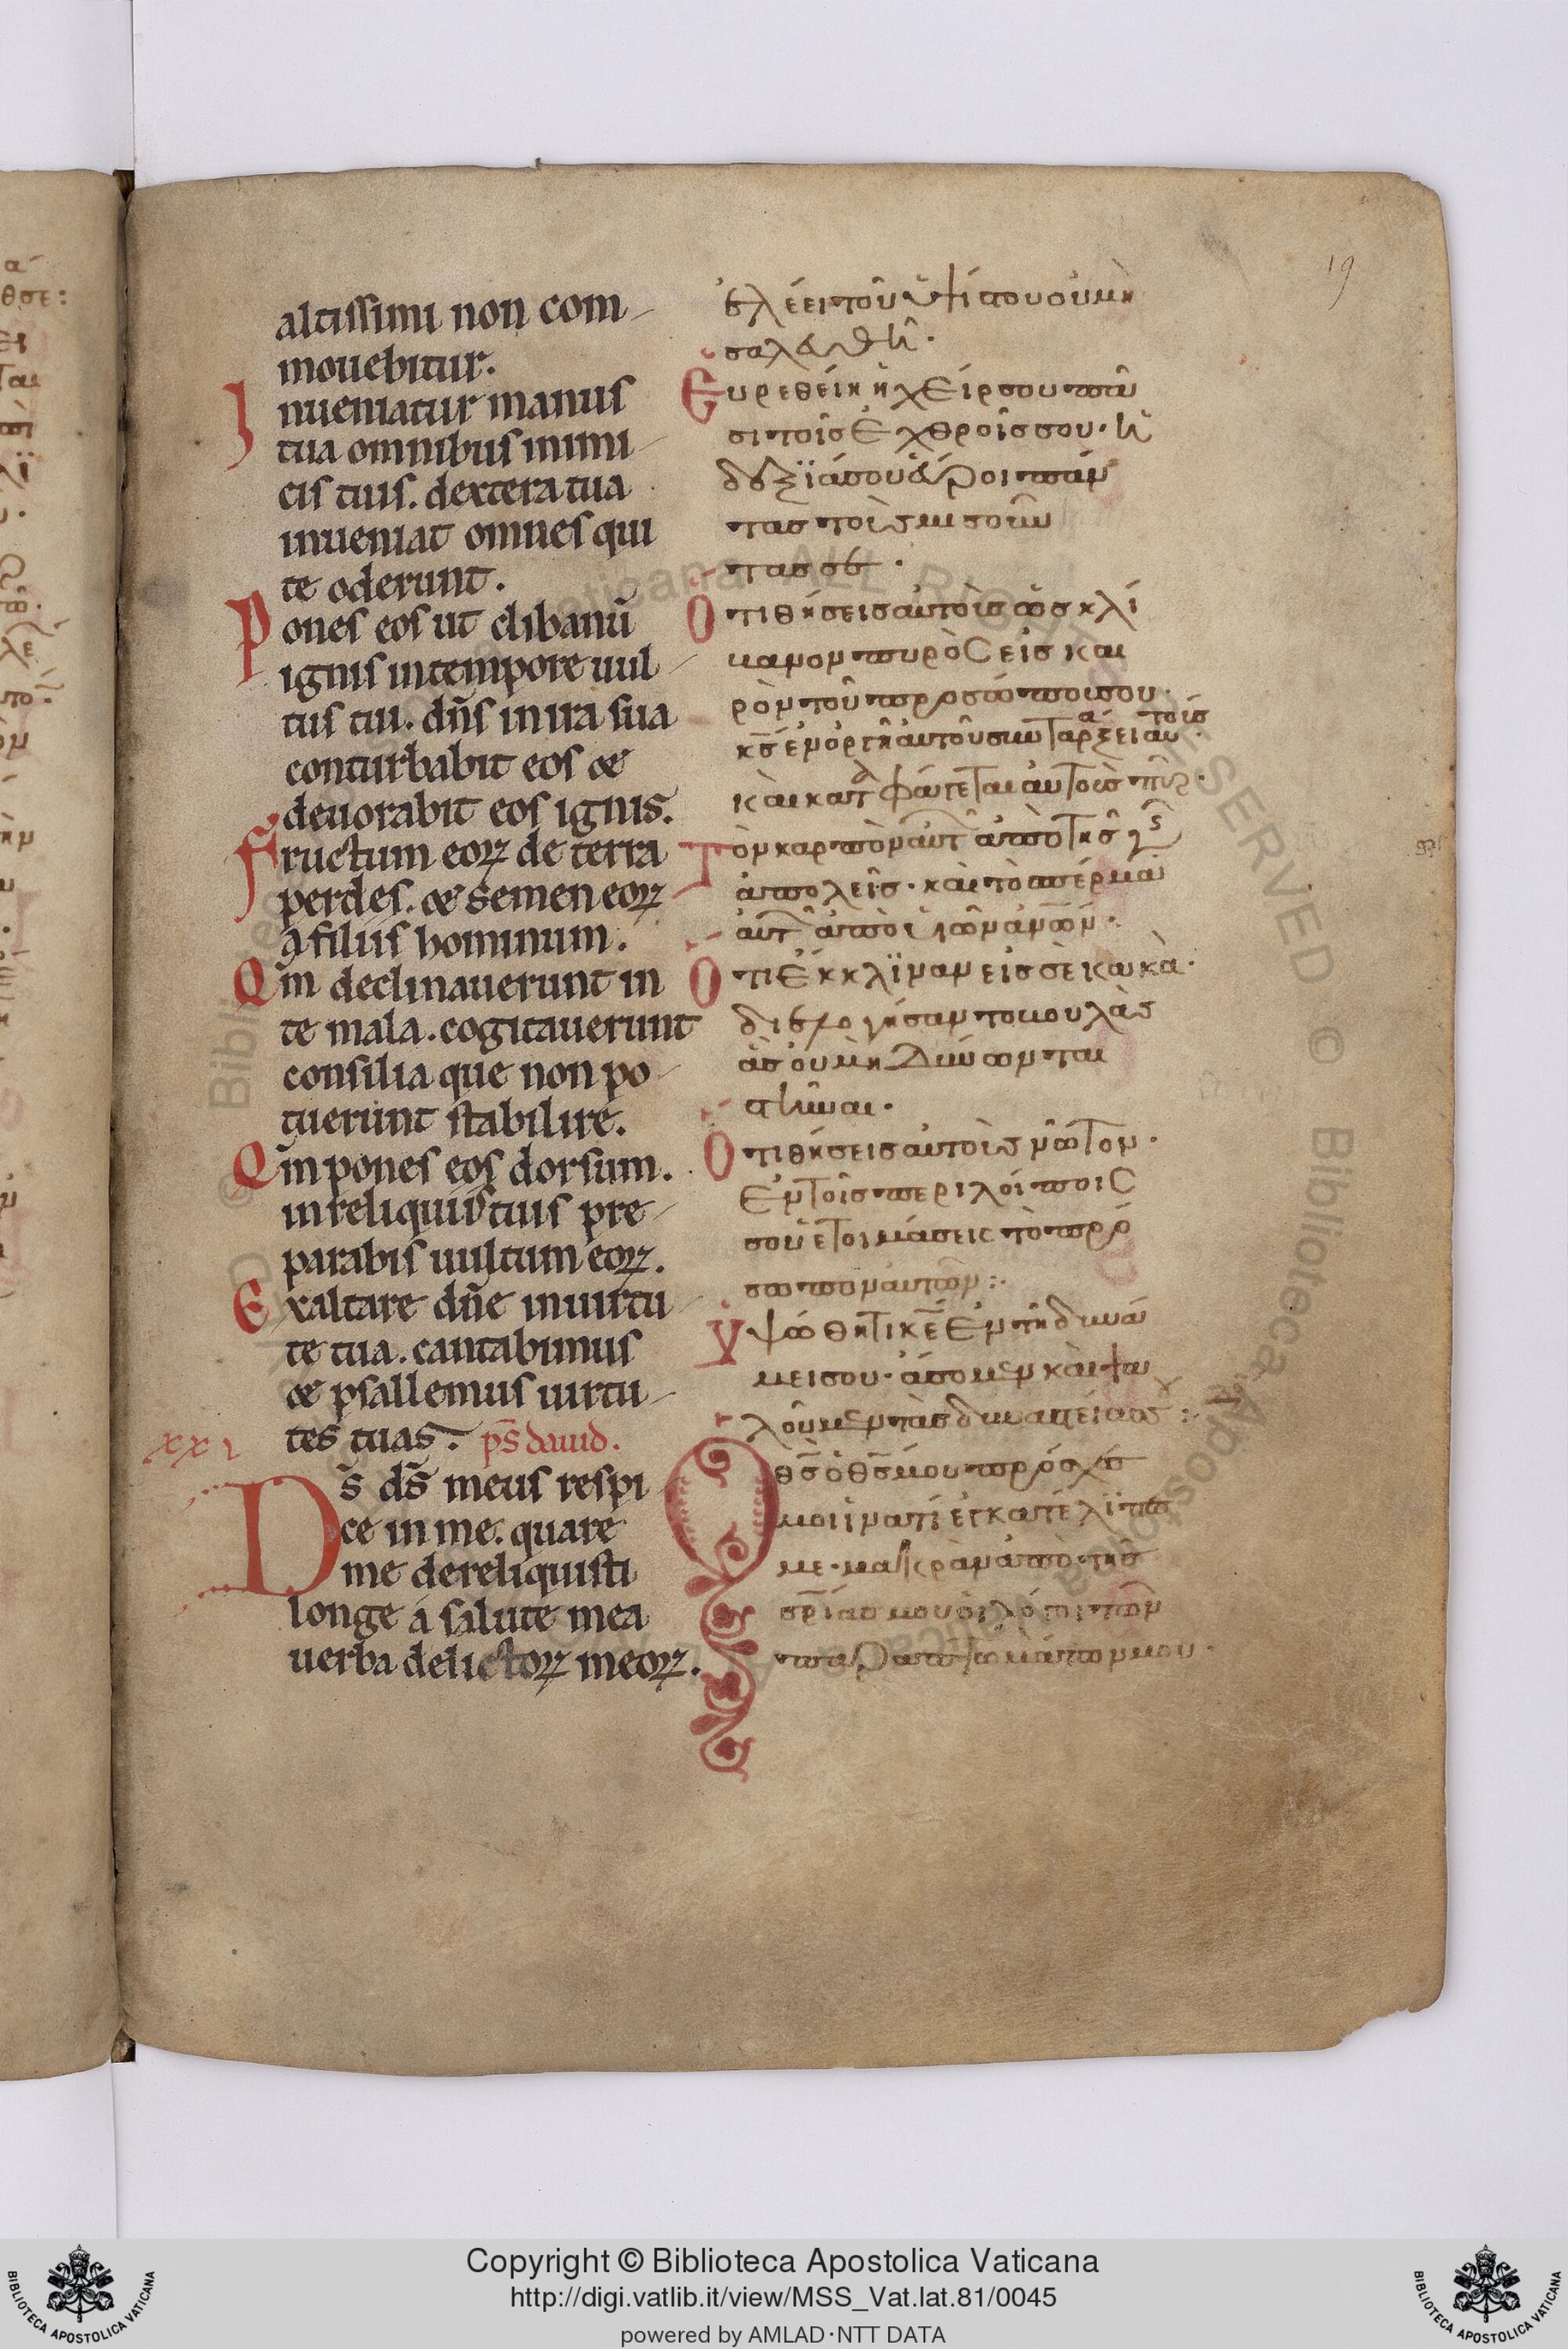 19
altissimi non com-
mouebitur.
Inueniatur manus
tua omnibus inimi-
cis tuis. dextera tua
inueniat omnes qui
te oderunt.
Pones eos ut clibanū
ignis in tempore uul-
tus tui. dn̄s in ira sua
conturbabit eos &
deuorabit eos ignis.
Fructum eoꝝ de terra
perdes. & semen eoꝝ
ꝯ filiis hominum.
Qm̄ declinauerunt in
te mala. cogitauerunt
consilia que non po-
tuerunt stabilire.
Qm̄ pones eos dorsum.
in reliquiis tuis pre-
parabis uultum eoꝝ.
Exaltare dn̄e in uirtu-
te tua. cantabimus
& psallemus uirtu-
tes tuas. ps̄ dauid.
xxi
Ds̄ ds̄ meus respi-
ce in me. quare
me dereliquisti
longe á salute mea
uerba delictoꝝ meoꝝ.
ἐλέει τοῦ ὑψίστου οὐ μὴ
σαλευθῆ.
Εὑρεθείη ἡ χείρ σου πᾶ
σι τοῖσ ἐχθροῖσ σου. ἡ
δεξϊά σου εὕροι πάν
τασ τοὺσ μισοῦν
τασ σε.
Ὅτι θήσεισ αὐτοὺσ ὡσ κλί
βανον πυρὸσ εἰσ και
ρὸν τοῦ προσώπου σου.
κ̄σ ἐν ὀργῆ αὐτοῦ συνταράξει αὐτούσ.
καὶ καταφάγεται αὐτοὺσ πῦρ.
Τὸν καρπὸν αὐτῶν ἀπὸ τῆσ γῆσ
ἀπολεῖσ. καὶ τὸ σπέρμα
αὐτῶν ἀπὸ υἱῶν ἀνω̄ν.
Ὅτι ἔκκλϊναν εἰσ σὲ κακὰ.
διελογίσαντο βουλὰσ
ἃσ οὐ μὴ δύνωνται
στῆναι.
Ὅτι θήσεισ αὐτοὺσ νῶτον.
Ἐν τοῖσ περιλοίποισ
σοῦ ἑτοιμάσεισ τὸ πρό
σωπον αὐτῶν:.
Ὑψώθητι κ̄ε ἐν τῆ δυνά
μει σου. ἄσομεν καὶ ψα
λοῦμεν τὰσ δυναστείασ σου:.
Ὁ θ̄σ ὁ θ̄σ μου πρόσχεσ
μοι ἱνατί ἐγκατέλϊπεσ
με. μακρὰν ἀπὸ τῆσ
σρ̄ίασ μου οἱ λόγοι τῶν
παραπτωμάτων μου.
Copyright © Biblioteca Apostolica Vaticana
http://digi.vatlib.it/view/MSS_Vat.lat.81/0045
powered by AMLAD·NTT DATA
BIBLIOTECA APOSTOLICA VATICANA
BIBLIOTECA APOSTOLICA VATICANA